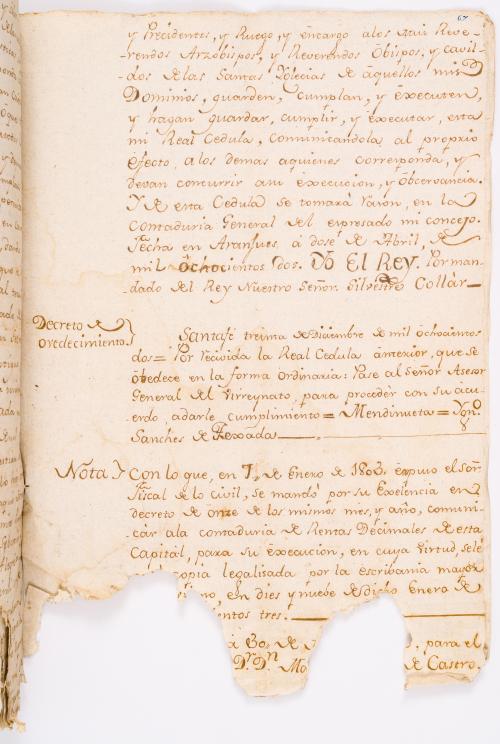 67
y Precidentes, y Ruego, y encargo alos mui Reve-
rendos Arzobispos, y Reverendos Obispos, y cavil-
dos delas Santas Yglecias de aquellos mis
Dominios, guarden, cumplan, y executen,
y hagan guardar, cumplir, y executar, esta
mi Real Cedula, comunicandola al proprio
efecto, alos demas aquienes corresponda, y
devan concurrir asu execucion, y observancia.
Y de esta Cedula se tomará razon, en la
Contaduria General del expresado mi concejo.
Fecha en Aranjues, á dose de Abril, de
mil ochocientos dos. Yo El Rey. Por man-
dado del Rey Nuestro Señor Silvestre Collár
Decreto de
ovedecimiento.
Santafé treinta de Diciembre de mil ochocientos
dos= Por recivida la Real Cedula anterior, que se
obedece en la forma ordinaria: Pase al Señor Asesor
General del Virreynato, para proceder con su acu-
erdo, adarle cumplimiento= Mendinueta=
Sanches de Texada
Nota
Con lo que, en 7,, de Enero de 1803, expuso el señor
Fiscal de lo Civil, se mandó por su Exelencia en
decreto de onze de los mismos mes, y año, comuni-
cár ala contaduria de Rentas Decimales de esta
Capital, para su execucion, en cuya virtud, se le
copia legalisada por la escribania mayor
no, en dies y nueve de dicho Enero de
entos tres.
á 30, de para el
Dr. Dn. Mo de Castro.